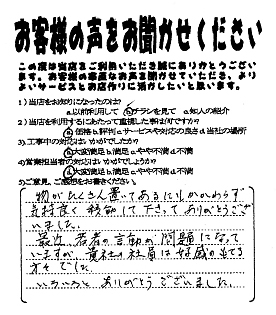 お客様の声をお聞かせください
この度は当店をご利用いただき誠にありがとうござい
ます。お客様の率直なお声を聞かせていただき、より
よいサービスとお店作りに活かしたいと思います。
1)当店をお知りになったのは?
a.以前利用して b.チラシを見て c.知人の紹介
2)当店を利用するにあたって重視した事は何ですか?
a.価格 b.評判 c.サービスや対応の良さ d.当社の場所
3)工事中の対応はいかがでしたか?
a.大変満足 b.満足 c.やや不満 d.不満
4)営業担当者の対応はいかがでしょうか?
a.大変満足 b.満足 c.やや不満 d.不満
5)ご意見、ご感想をお書きください。
物がたくさん置いてあるにもかかわらず
気持良く移動して下さってありがとうござ
いました。
最近若者の言動が問題になって
いますが貴社の社員は好感のもてる
方々でした。
いろいろとありがとうございました。